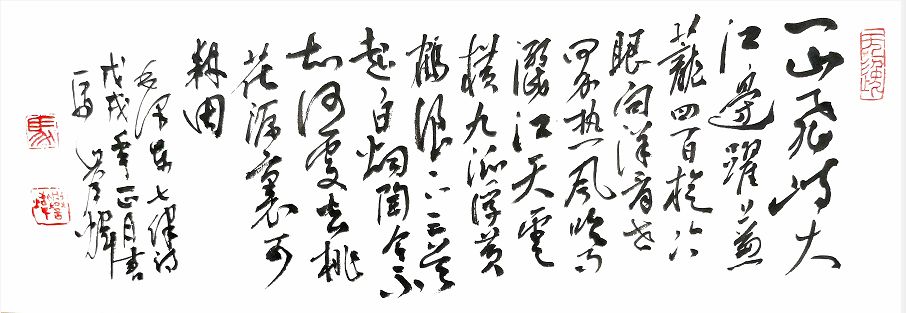 一山飞峙大
江邊躍上葱
蘢四百旋冷
眼向洋看世
界热風吹雨
灑江天雲
横九派浮黄
鹤浪下三吴
起白烟陶令不
知何處去桃
花源裏可
耕田
毛泽东七律诗
戊戌年正月書
馬